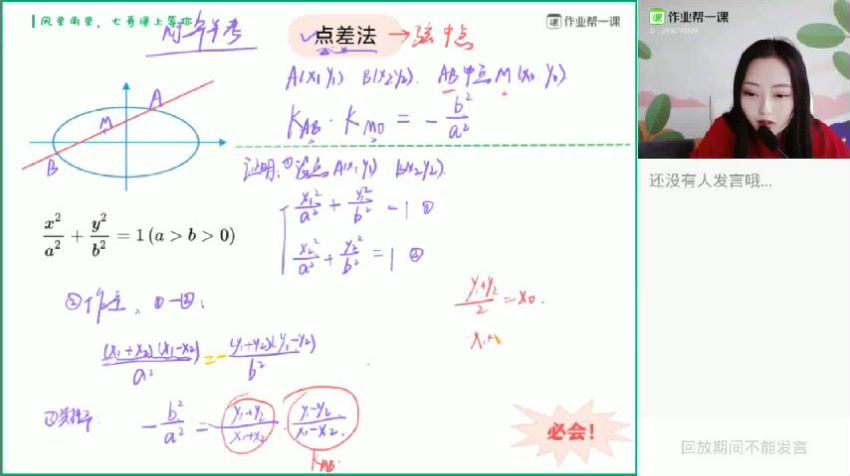 风里雨里，七哥课上等你
点差法 → 弦中点
作业帮一课
作业帮一课
A(x₁ y₁) B(x₂ y₂). AB 中点 M(x₀ y₀)
k_AB · k_MO = - b²/a²
A
M
B
证明: ①设点 A(x₁ y₁) B(x₂ y₂).
x₁²/a² + y₁²/b² = 1 ①
x₂²/a² + y₂²/b² = 1 ②
x²/a² + y²/b² = 1 (a > b > 0)
②作差, ①-②:
(y₁+y₂)/2 = x₀.
(x₁+x₂)(x₁-x₂)/a² = - (y₁+y₂)(y₁-y₂)/b²
- b²/a² = (y₁+y₂)/(x₁+x₂) · (y₁-y₂)/(x₁-x₂).
k_AB.
必会！
还没有人发言哦...
回放期间不能发言